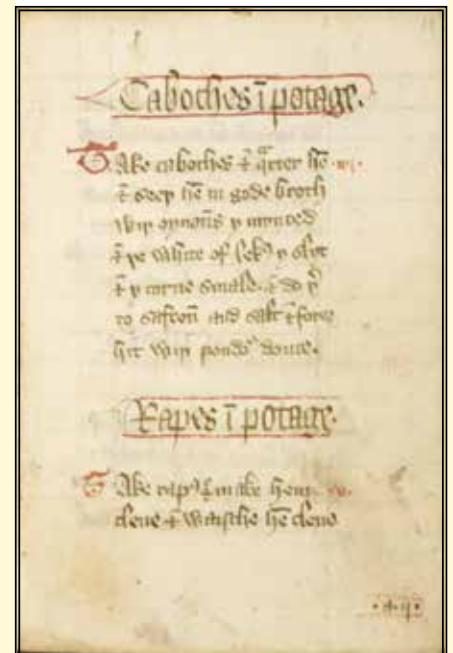 Caboches ī potage.
Take caboches ⁊ qͣrter hē · vi ·
⁊ seeþ hē in gode broth
wiþ oynoūs y mynced
⁊ þe white of lekꝭ y slyt
⁊ y corue smale. ⁊ do þͬ
to safroū and salt ⁊ force
hit wiþ poudoͬ douce.
Rapes ī potage.
Take rapꝭ ⁊ make hem
clene ⁊ waisshe hē clene